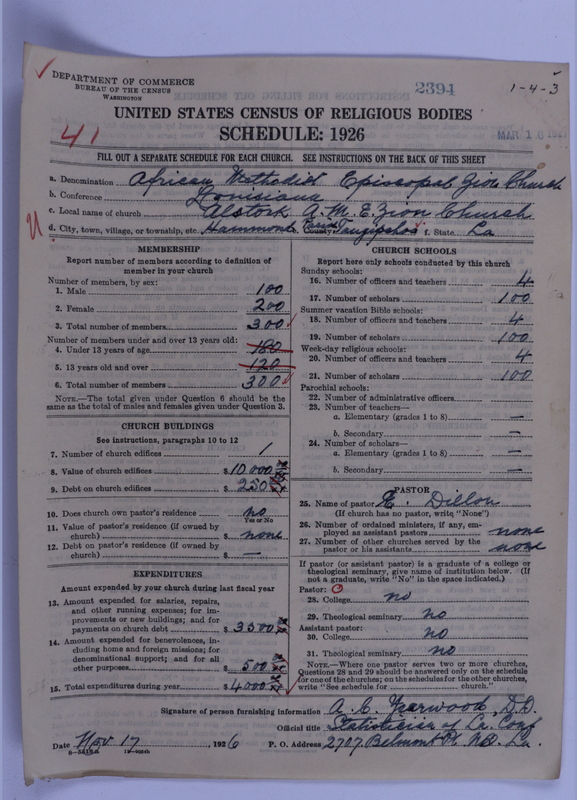 DEPARTMENT OF COMMERCE
BUREAU OF THE CENSUS
WASHINGTON
2394
1-4-3
41
UNITED STATES CENSUS OF RELIGIOUS BODIES
SCHEDULE: 1926
FILL OUT A SEPARATE SCHEDULE FOR EACH CHURCH. SEE INSTRUCTIONS ON THE BACK OF THIS SHEET
a. Denomination African Methodist Episcopal Zion Church
b. Conference Louisiana
c. Local name of church Alstork A. M. E. Zion Church
d. City, town, village, or township, etc. Hammond e. County Tangipahoa f. State La.
MEMBERSHIP
Report number of members according to definition of
member in your church
Number of members, by sex:
1. Male 100
2. Female 200
3. Total number of members 300
Number of members under and over 13 years old:
4. Under 13 years of age 180
5. 13 years old and over 120
6. Total number of members 300
NOTE.—The total given under Question 6 should be the
same as the total of males and females given under Question 3.
CHURCH BUILDINGS
See instructions, paragraphs 10 to 12
7. Number of church edifices 1
8. Value of church edifices $ 10000
9. Debt on church edifices $ 250
10. Does church own pastor's residence no
Yes or No
11. Value of pastor's residence (if owned by
church) $ none
12. Debt on pastor's residence (if owned by
church) $ —
EXPENDITURES
Amount expended by your church during last fiscal year
13. Amount expended for salaries, repairs,
and other running expenses; for im-
provements or new buildings; and for
payments on church debt $ 3500
14. Amount expended for benevolences, in-
cluding home and foreign missions; for
denominational support; and for all
other purposes $ 500
15. Total expenditures during year $ 4000
CHURCH SCHOOLS
Report here only schools conducted by this church
Sunday schools:
16. Number of officers and teachers 4
17. Number of scholars 100
Summer vacation Bible schools:
18. Number of officers and teachers 4
19. Number of scholars 100
Week-day religious schools:
20. Number of officers and teachers 4
21. Number of scholars 100
Parochial schools:
22. Number of administrative officers
23. Number of teachers—
a. Elementary (grades 1 to 8) —
b. Secondary —
24. Number of scholars—
a. Elementary (grades 1 to 8) —
b. Secondary —
PASTOR
25. Name of pastor E. Dillon
(If church has no pastor, write "None")
26. Number of ordained ministers, if any, em-
ployed as assistant pastors none
27. Number of other churches served by the
pastor or his assistants none
If pastor (or assistant pastor) is a graduate of a college or
theological seminary, give name of institution below. (If
not a graduate, write "No" in the space indicated.)
Pastor:
28. College no
29. Theological seminary no
Assistant pastor:
30. College no
31. Theological seminary no
NOTE.—Where one pastor serves two or more churches,
Questions 28 and 29 should be answered only on the schedule
for one of the churches; on the schedules for the other churches,
write "See schedule for church."
Signature of person furnishing information A. C. Yearwood, D.D.
Official title Statistician of La. Conf
Date Nov 17, 1926 P. O. Address 2707 Belmont Pl. N.O. La.